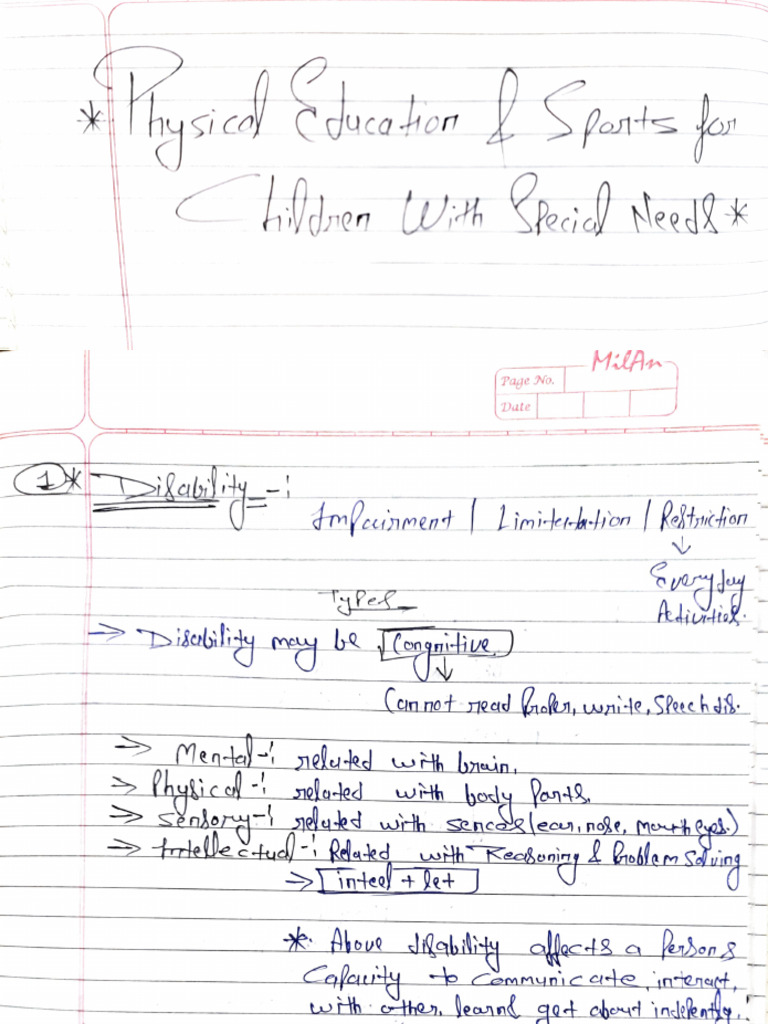 * Physical Education & Sports for
Children With Special Needs *
MilAn
Page No.
Date
1 * Disability -:
Impairment | Limitation | Restriction
↓
Everyday
Activities.
Types
→ Disability may be Congnitive
↓
Cannot read Proper, write, Speech dis.
→ Mental -: related with brain.
→ Physical -: related with body Parts.
→ Sensory -: related with sences (ear, nose, mouth eyes.)
→ Intellectual -: Related with Reasoning & Problem Solving
→ inteel + let
* Above disability affects a Persons
Capacity to communicate, interact,
with other, learn & get about indepently.